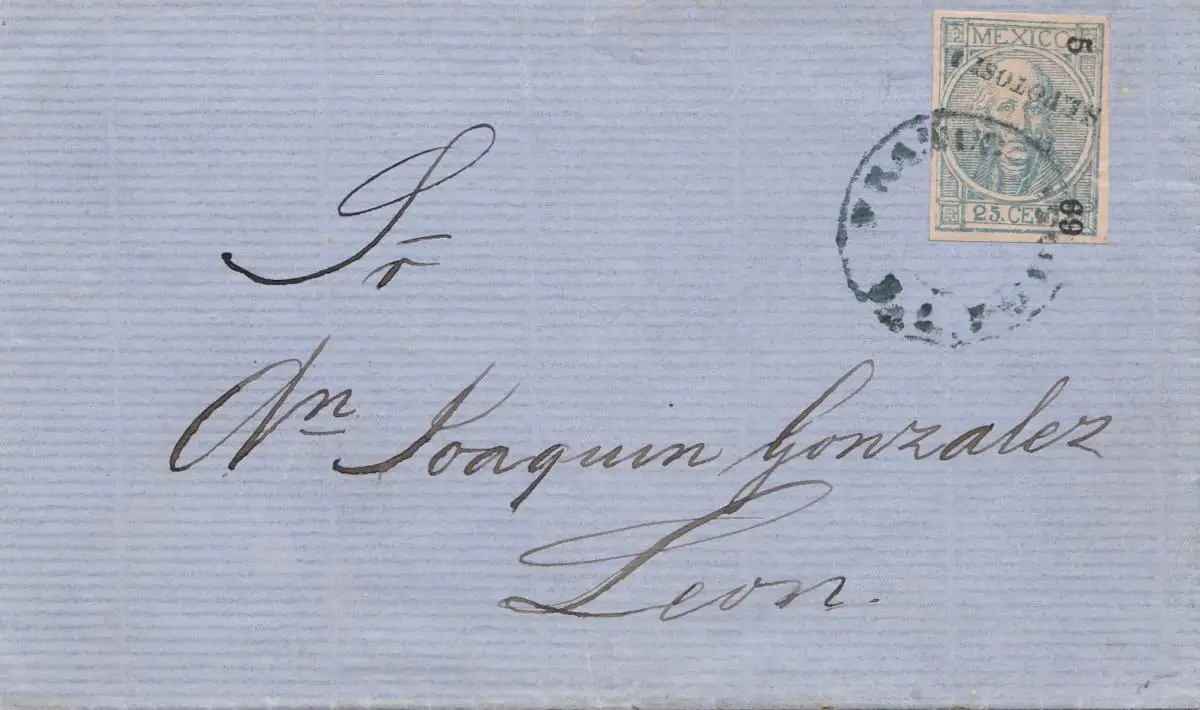 MEXICO
5
S.L.POTOSI
FRANCO
25. CEN
69
Sr
Dn Joaquin Gonzalez
Leon.